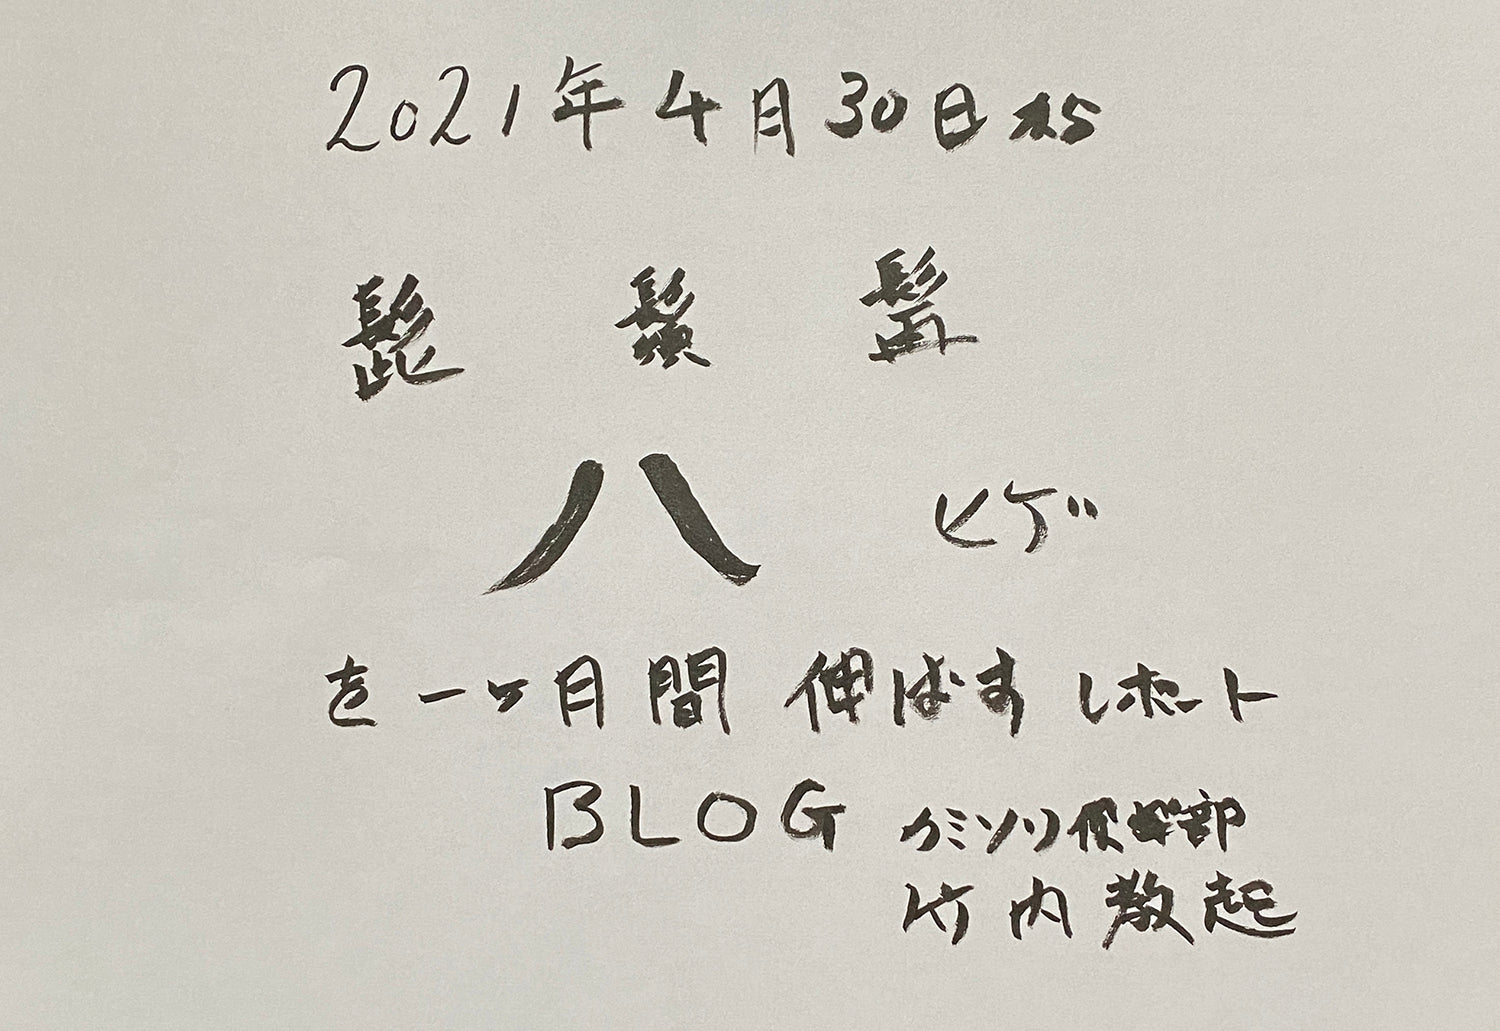 2021年4月30日から
髭 鬚 髯
八 ヒゲ
を一ヶ月間 伸ばす レポート
BLOG カミソリ倶楽部
竹内教起